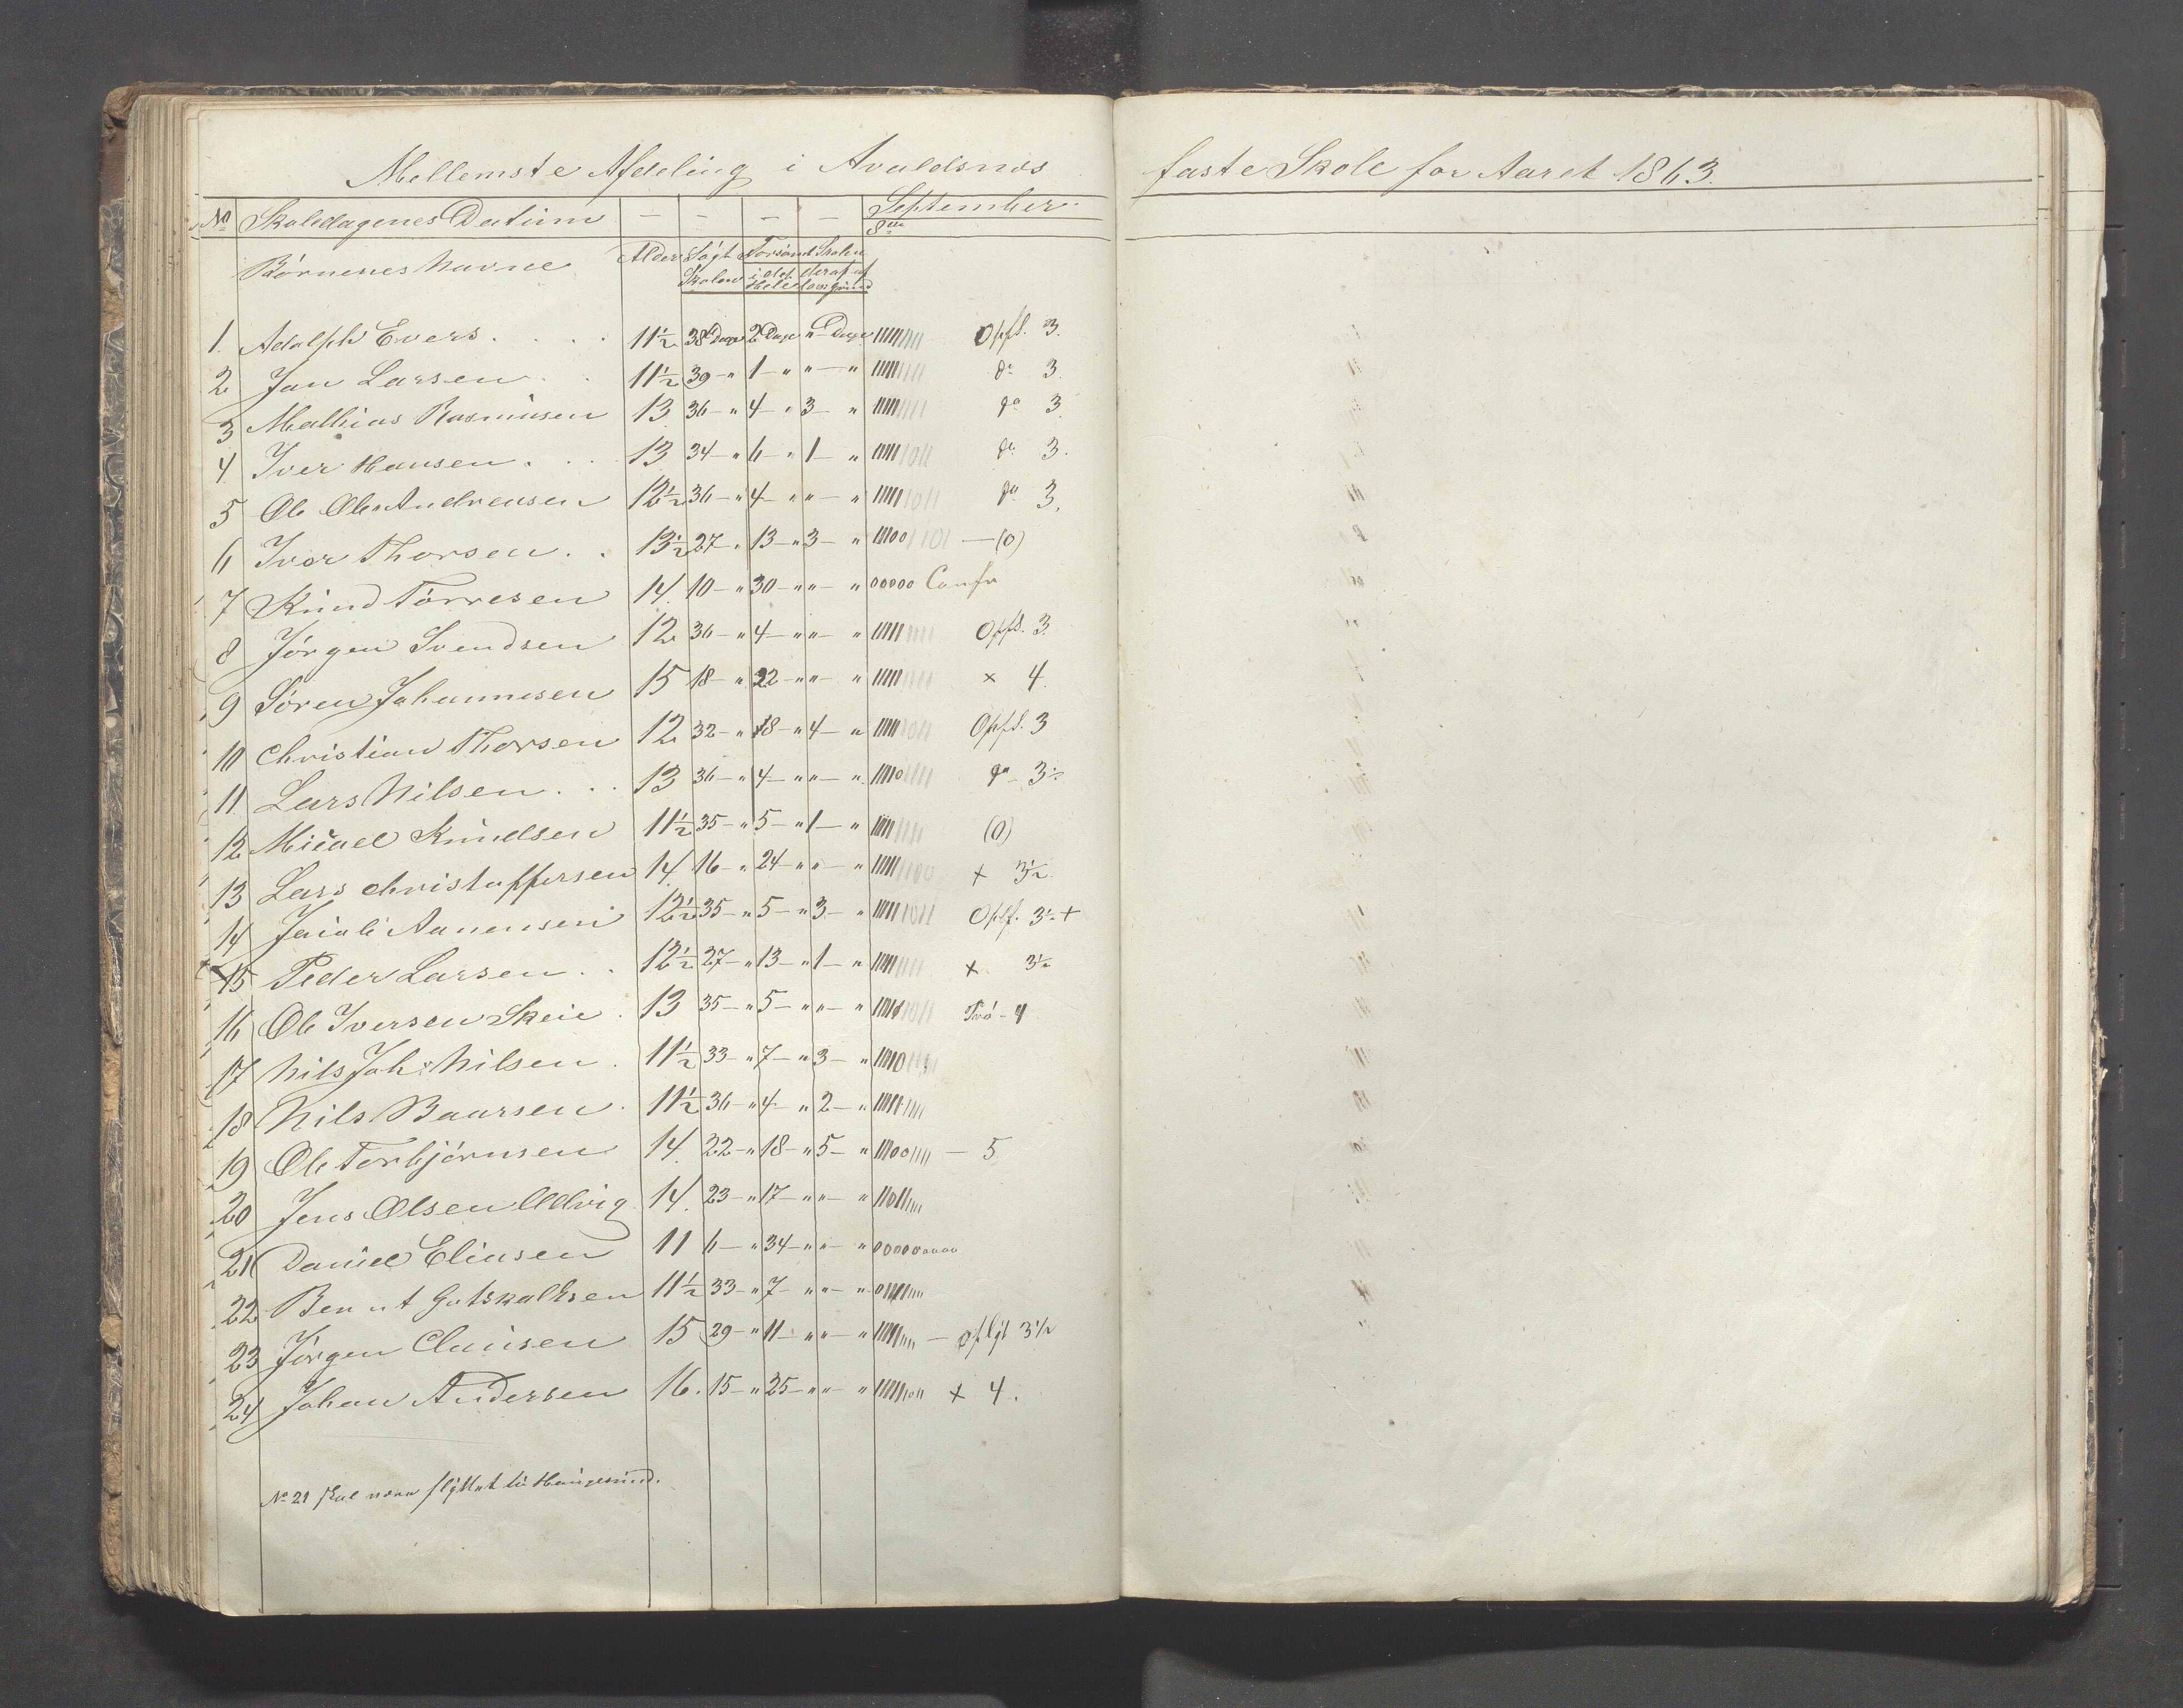 Mellemste Afdeling i Avaldsnæs faste Skole for Aaret 1863.
No Skoledagenes Datum — — — — September
8de
Børnenes Navne Alder Søgt Skolen Forsømt Skolen i det Hele deraf uf lovl. Grund
1. Adolph Evers . . . . 11½ 38 Dage 2 Dage " Dage IIIII Opfl. 3.
2 Jan Larsen . . 11½ 39 – " 1 – " " – " IIIII do 3.
3 Mathias Rasmusen 13 36 – " 4 – " 3 – " IIIII do 3.
4. Iver Hansen . . . 13 34 – " 6 – " 1 – " IIIII do 3.
5 Ole Ole Andreasen 12½ 36 – " 4 – " " – " IIIII do 3.
6 Ivar Thorsen . . 13½ 27 – " 13 – " 3 – " III00 — (0)
7 Knud Tørresen 14. 10 – " 30 – " " – " 00000 Confr
8 Jørgen Svendsen 12 36 – " 4 – " " – " IIIII Opfl. 3.
9 Søren Johannesen 15 18 – " 22 – " " – " IIIII × 4.
10 Christian Thorsen 12 32 – " 8 – " 4 – " IIIII Opfl. 3
11 Lars Nilsen . . . 13 36 – " 4 – " " – " IIII0 do 3½
12 Micael Knudsen 11½ 35 – " 5 – " 1 – " IIIII (0)
13 Lars Christoffersen 14. 16 – " 24 – " " – " IIIII + 3½.
14 Jacob Aanensen 12½ 35 – " 5 – " 3 – " IIIII Opfl. 3½ +
15 Peder Larsen . . 12½ 27 – " 13 – " 1 – " IIIII + 3½
16 Ole Iversen Skeie . 13 35 – " 5 – " " – " IIIII 4
17 Nils Joh: Nilsen . 11½ 33 – " 7 – " 3 – " IIII0
18 Nils Baarsen . 11½ 36 – " 4 – " 2 – " IIIII
19 Ole Torbjørnsen 14. 22 – " 18 – " 5 – " III00IIII — 5
20 Jens Olsen Udvig 14. 23 – " 17 – " " – " II0II
21 Daniel Eliasen 11 6 – " 34 – " " – " 000000000
22 Berent Gutskalksen 11½ 33 – " 7 – " " – " 0IIII
23 Jørgen Clausen 15 29 – " 11 – " " – " IIIII — opflyt 3½
24 Johan Andersen 16. 15 – " 25 – " " – " IIIII + 4.
No 21 skal være flyttet til Haugesund.